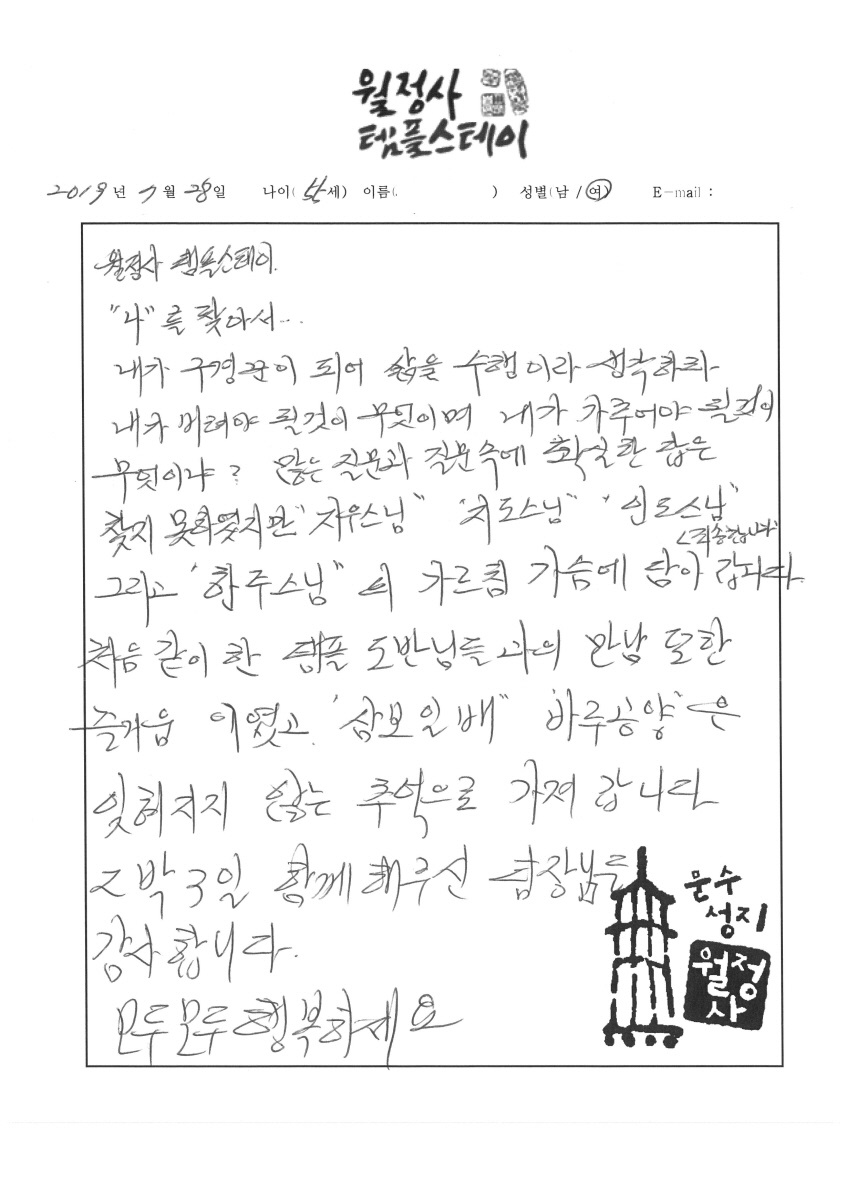 월정사
템플스테이
2019년 7월 28일 나이( 세) 이름( ) 성별(남 / 여) E-mail :
월정사 템플스테이.
"나"를 찾아서...
내가 구경꾼이 되어 삶을 수행이라 생각하라
내가 버려야 될것이 무엇이며 내가 가루어야 될것이
무엇이냐? 많은 질문과 질문속에 확실한 답은
찾지 못하였지만 "자우스님" "지도스님" "인도스님"
<죄송합니다>
그리고 "한주스님"의 가르침 가슴에 담아 갑니다.
처음 같이 한 템플 도반님들과의 만남 또한
즐거움 이였고. "삼보일배" "바루공양"은
잊혀지지 않는 추억으로 가져 갑니다
2박 3일 함께해주신 팀장님들
감사합니다.
모두모두 행복하세요
문수
성지
월정
사